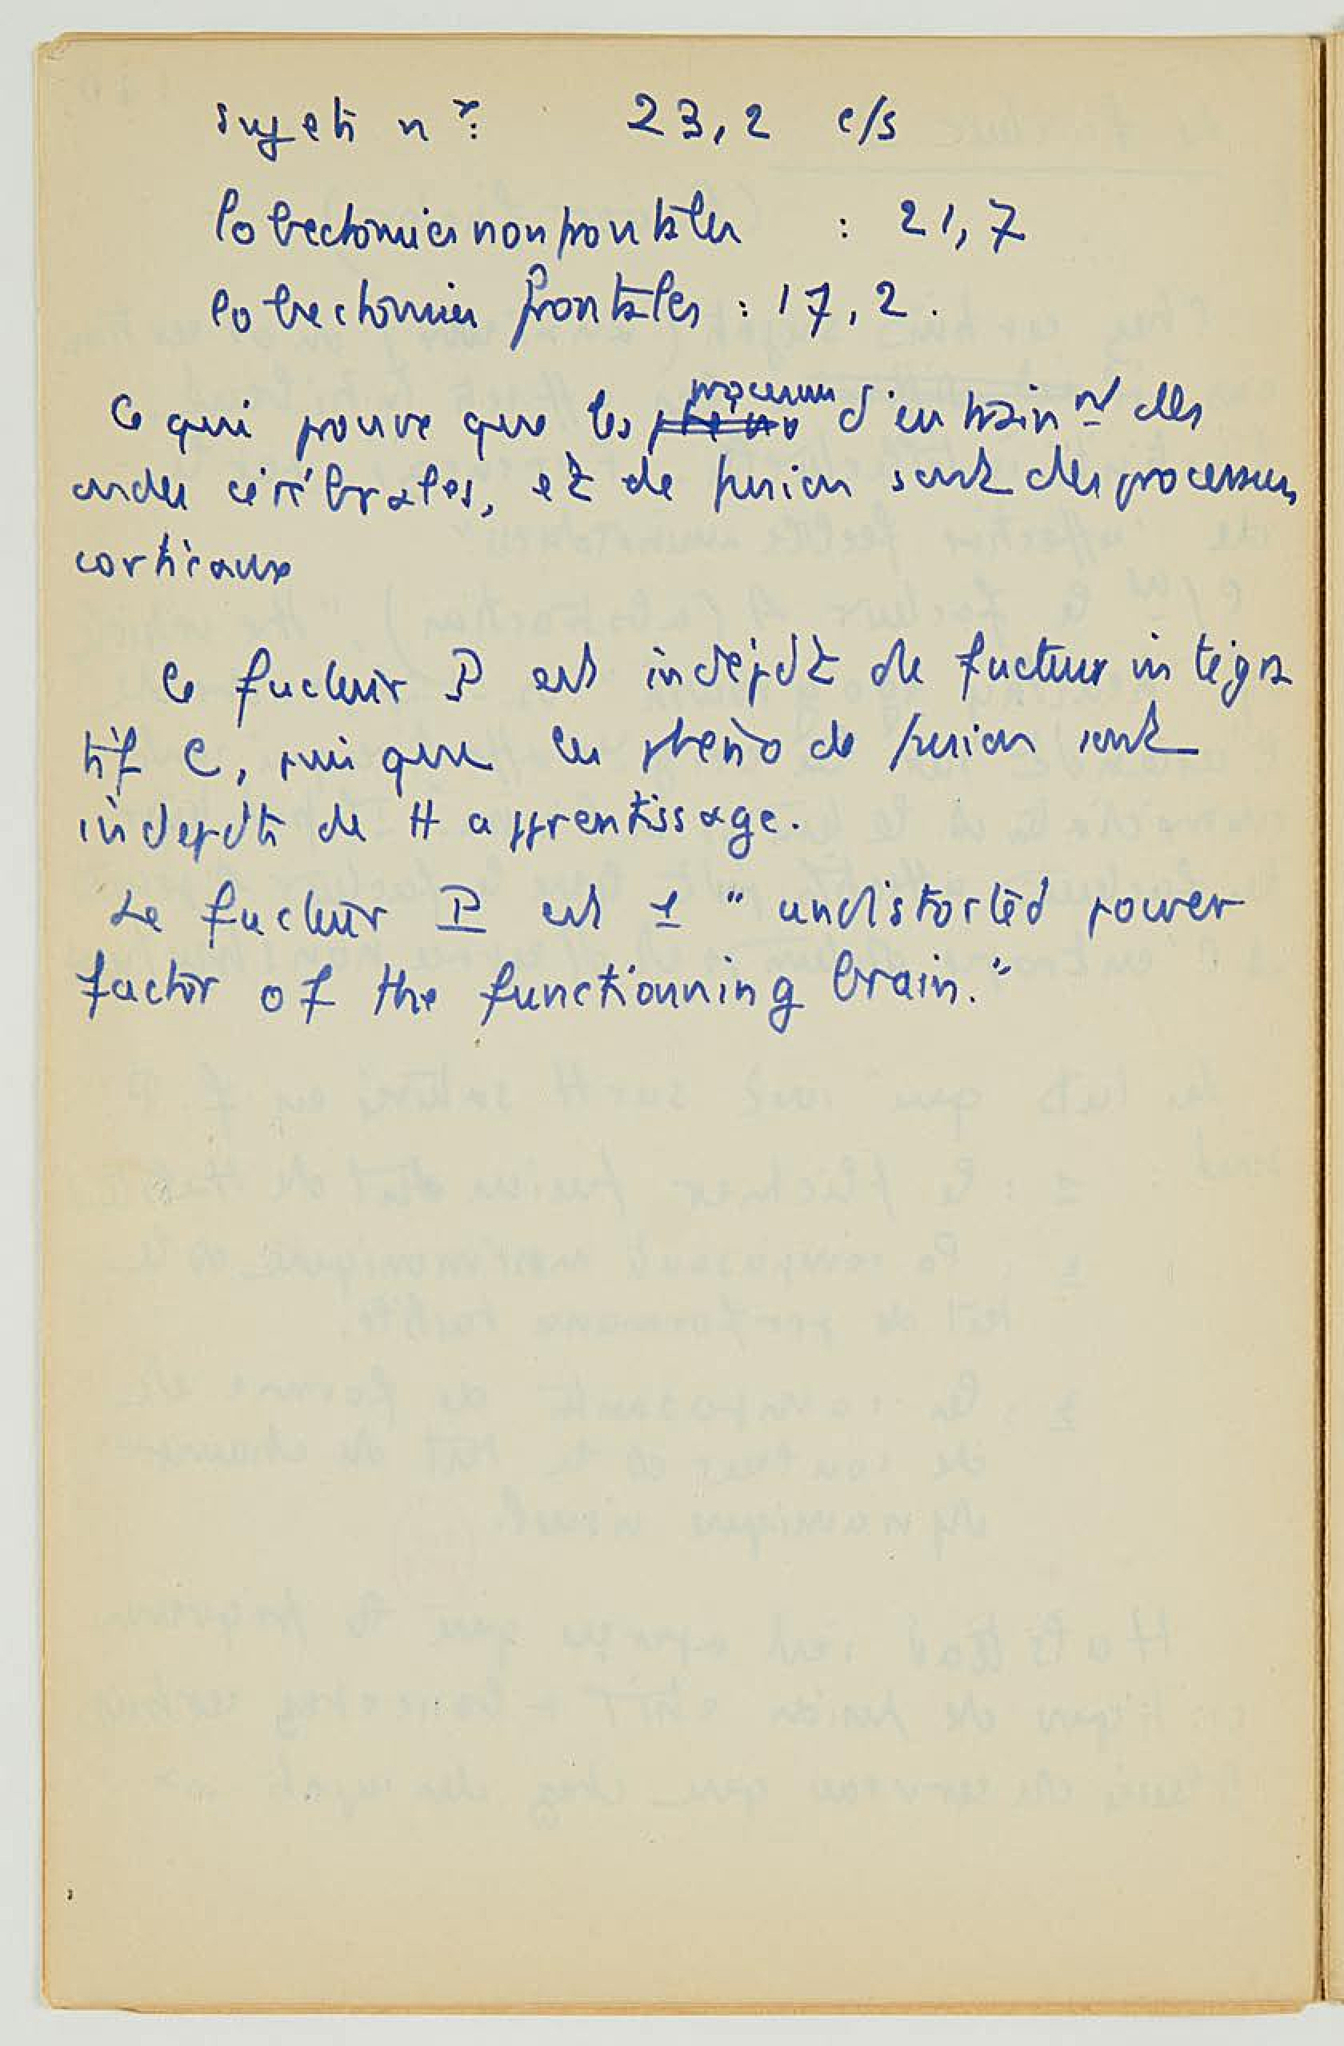 sujets nx : 23,2 c/s
lobectomies non frontales : 21,7
lobectomies frontales : 17,2.
processus
Ce qui prouve que les phéno d'entrainnt des
ondes cérébrales, et de fusion sont des processus
corticaux
Le facteur P est indépdt de facteur intégra
tif C, puisque les phéno de fusion sont
indepdts de tt apprentissage.
Le facteur P est 1 "undistorted power
factor of the functionning brain."